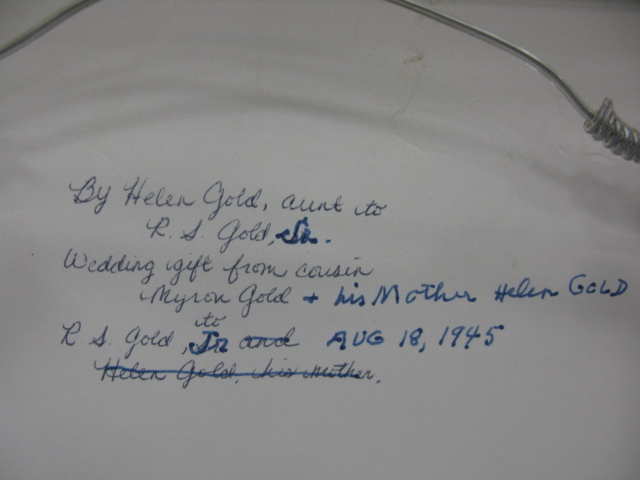 By Helen Gold, aunt to
R. S. Gold, Sr.
Wedding gift from cousin
Myron Gold + his Mother Helen GOLD
to
R S. Gold, Jr and AUG 18, 1945
Helen Gold, his mother.